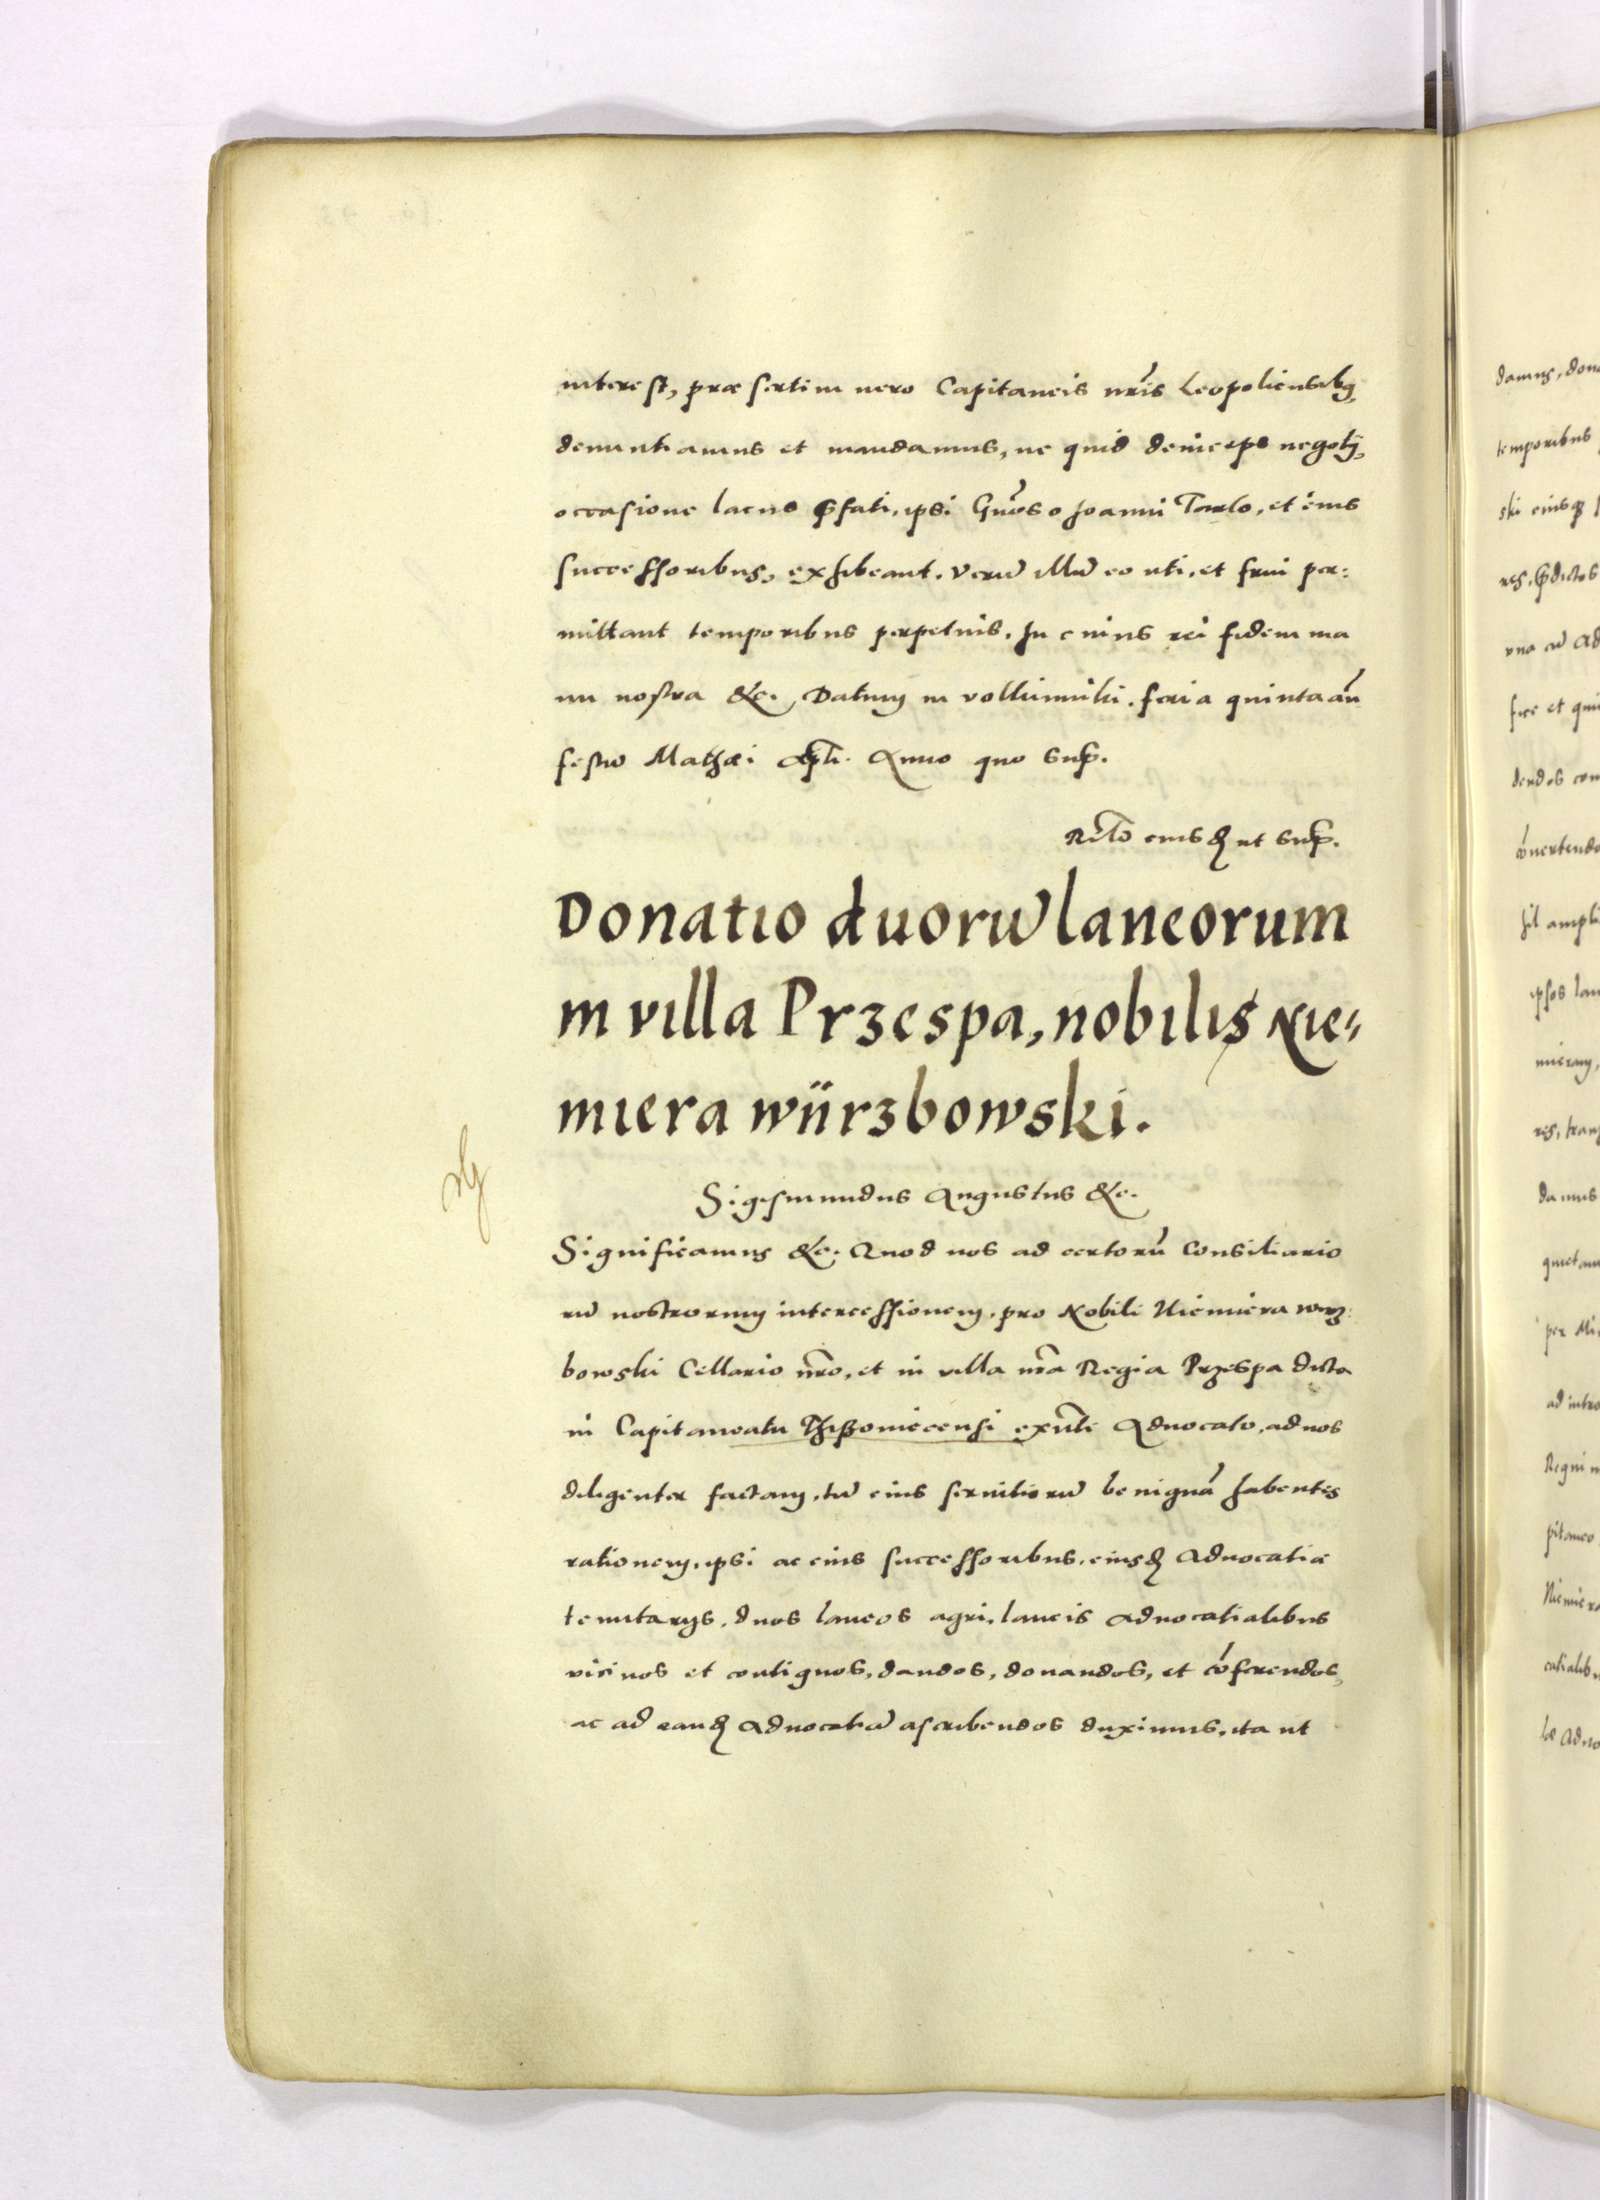 interest, præsertim uero Capitaneis nr̃is Leopoliensibꝫ,
denuntiamus et mandamus, ne quid deinceps negotij,
occasione lacus p̃fati, ipsi Gñoso Joanni Tarlo, et eius
successoribus, exhibeant. Verũ illũ eo uti, et frui per:
mittant temporibus perpetuis. In cuius rei fidem ma
nu nostra &c. Datum in
feria quinta añ
festũ Mathæi Apl̃i. Anno quo sup̃.
Rel̃o eiusđ ut sup̃.
Donatio duorũ laneorum
in villa Przespa, nobilis Nie=
miera wiirzbowski.
Sigismundus Augustus &c.
Significamus &c. Quod nos ad certorũ Consiliario
rũ nostrorum intercessionem, pro Nobili Niemiera wirz:
bowski Cellario nr̃o, et in uilla nr̃a Regia Przespa dicta
in Capitaneatu
exñte Aduocato, ad nos
diligenter factam, tũ eius seruitiorũ benignã habentes
rationem, ipsi ac eius successoribus, eiusđ Aduocatiæ
tenutarijs, duos laneos agri, laneis aduocatialibus
uicinos et contiguos, dandos, donandos, et cõferendos,
ac ad eandđ Aduocatiã ascribendos duximus, ita ut
damus, don
temporibus
ski eiusq
p̃dictos
una cũ Ad
dendos con
cõuertendo
hil ampli
ipsos lan
mieram,
ris, trans
damus
per Mi
ad intro
Regni n
pitaneo
Niemiera
catialibu